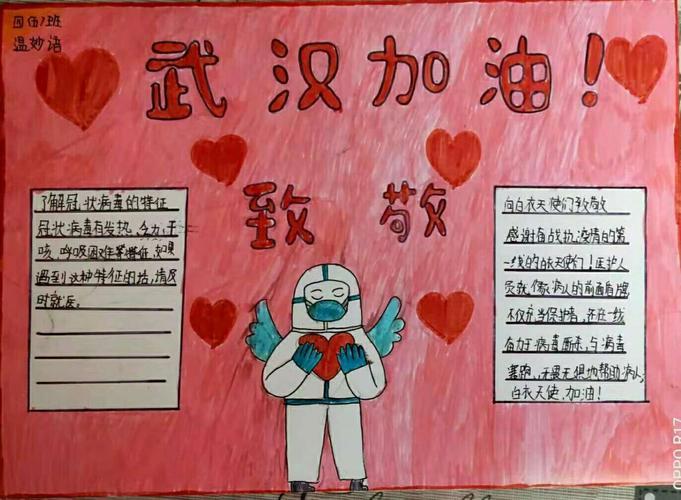 四(5)班
温妙语
武汉加油!
致敬
了解冠状病毒的特征
冠状病毒有发热,乏力,干
咳,呼吸困难等特征,如果
遇到这种特征的话,请及
时就医。
向白衣天使们致敬
感谢奋战抗疫情的第
一线的白衣天使们!医护人
员就像病人的前面盾牌
不仅担当保护墙,还在一线
奋力于病毒厮杀,与病毒
赛跑,无畏无惧地帮助病人,
白衣天使,加油!
OPPO R17